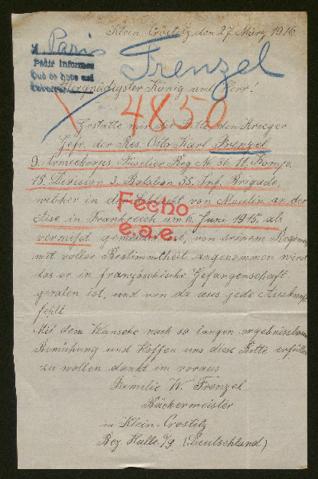 Klein Crostitz, den 27 März 1916
A Paris
Pedir informes
Frenzel
Allergnädigster König und Herr!
4850
Gestatte mir die Bitte den Krieger
Gefr. der Res. Otto Karl Frenzel
9. Armeekorps, Füselier Reg. No 36 11. Komp.
18. Division 3. Batalion 35. Inf. Brigade
welcher in der Schlacht von Moulin an der
Aise in Frankreich am 6. Juni 1915 als
vermißt gemeldet ist, von seinem Regiment
mit voller Bestimmtheit angenommen wird
das er in französische Gefangenschaft
geraten ist, und von da aus jede Auskunft
fehlt.
Fecho
e.a.e.
Mit dem Wunsche nach so langen ergebnislosen
Bemühung und Hoffen uns diese Bitte erfüllen
zu wollen dankt im voraus
Familie W. Frenzel
Bäckermeister
in Klein-Crostitz
Bez. Halle S/g (Deutschland)